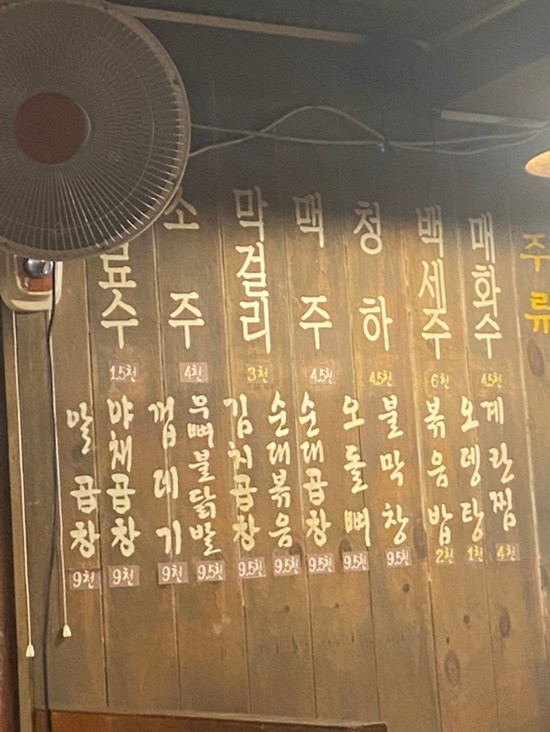 주류
매화수
4.5천
백세주
6천
청하
4.5천
맥주
4.5천
막걸리
3천
소주
4천
료수
1.5천
계란찜
4천
오뎅탕
1천
볶음밥
2천
불막창
9.5천
오돌뼈
9.5천
순대곱창
9.5천
순대볶음
9.5천
김치곱창
9.5천
무뼈불닭발
9.5천
껍데기
9천
야채곱창
9천
알곱창
9천